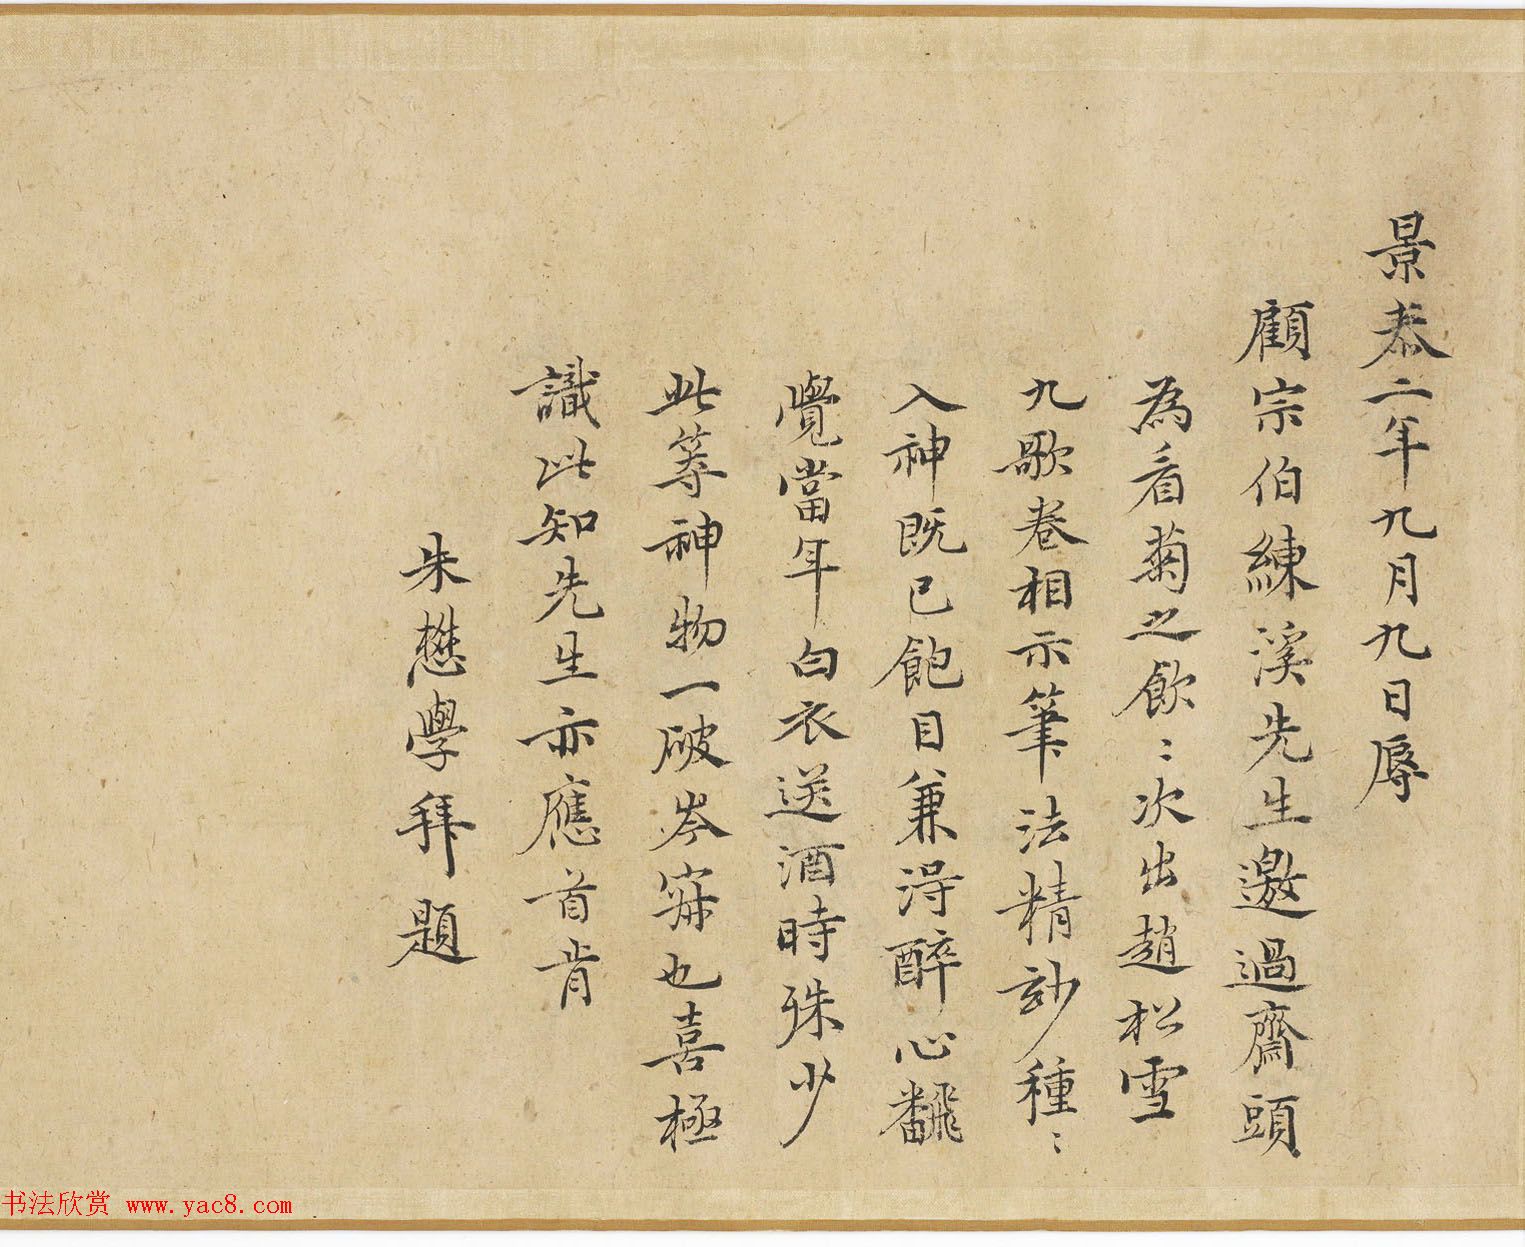 景泰二年九月九日辱
顧宗伯練溪先生邀過齋頭
為看菊之飲〻次出趙松雪
九歌卷相示筆法精妙種〻
入神既已飽目兼得醉心飜
覺當年白衣送酒時殊少
此等神物一破岑寂也喜極
識此知先生亦應首肯
朱懋學拜題
书法欣赏 www.yac8.com